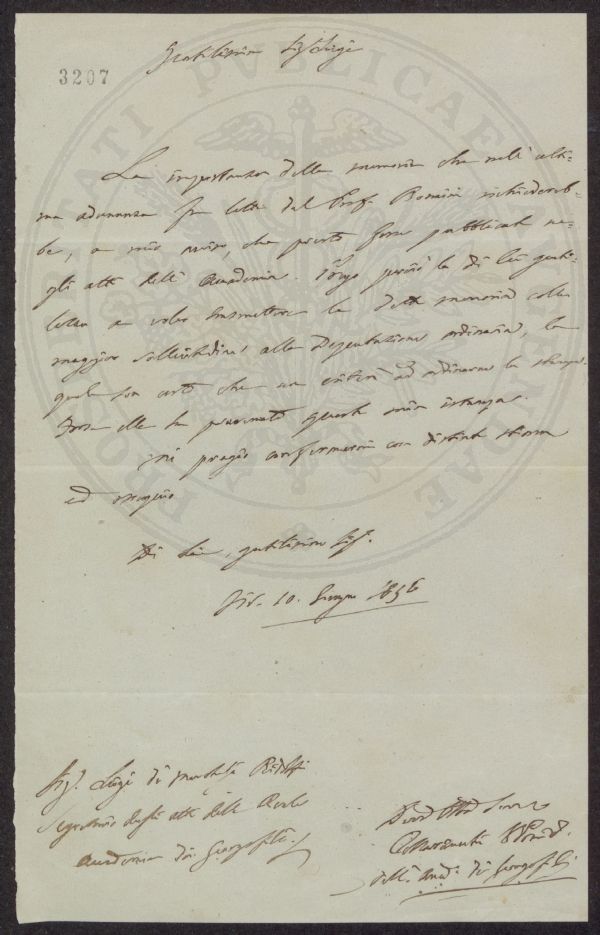 Gentilissimo Sig. Luigi
3207
PROSPERITATI PUBLICAE AUGENDAE
La importanza della memoria che nell' ulti-
ma adunanza fu letta dal Prof. richiedereb-
be, a mio avviso, che presto fosse pubblicata ne-
gli atti dell' Accademia. Prego perciò la di lei genti-
lezza a voler trasmettere la detta memoria colla
maggior sollecitudine alla Deputazione ordinaria, la
quale son certo che non esiterà ad ordinarne la stampa.
questa mia istanza.
Mi pregio confermarmi con distinta stima
ed ossequio
Di Lei, gentilissimo Sig.
10. Giugno 1856
Sig. Luigi di Ridolfi
Segretario degli atti della Reale
Accademia dei Georgofili
dell' Accad. dei Georgofili